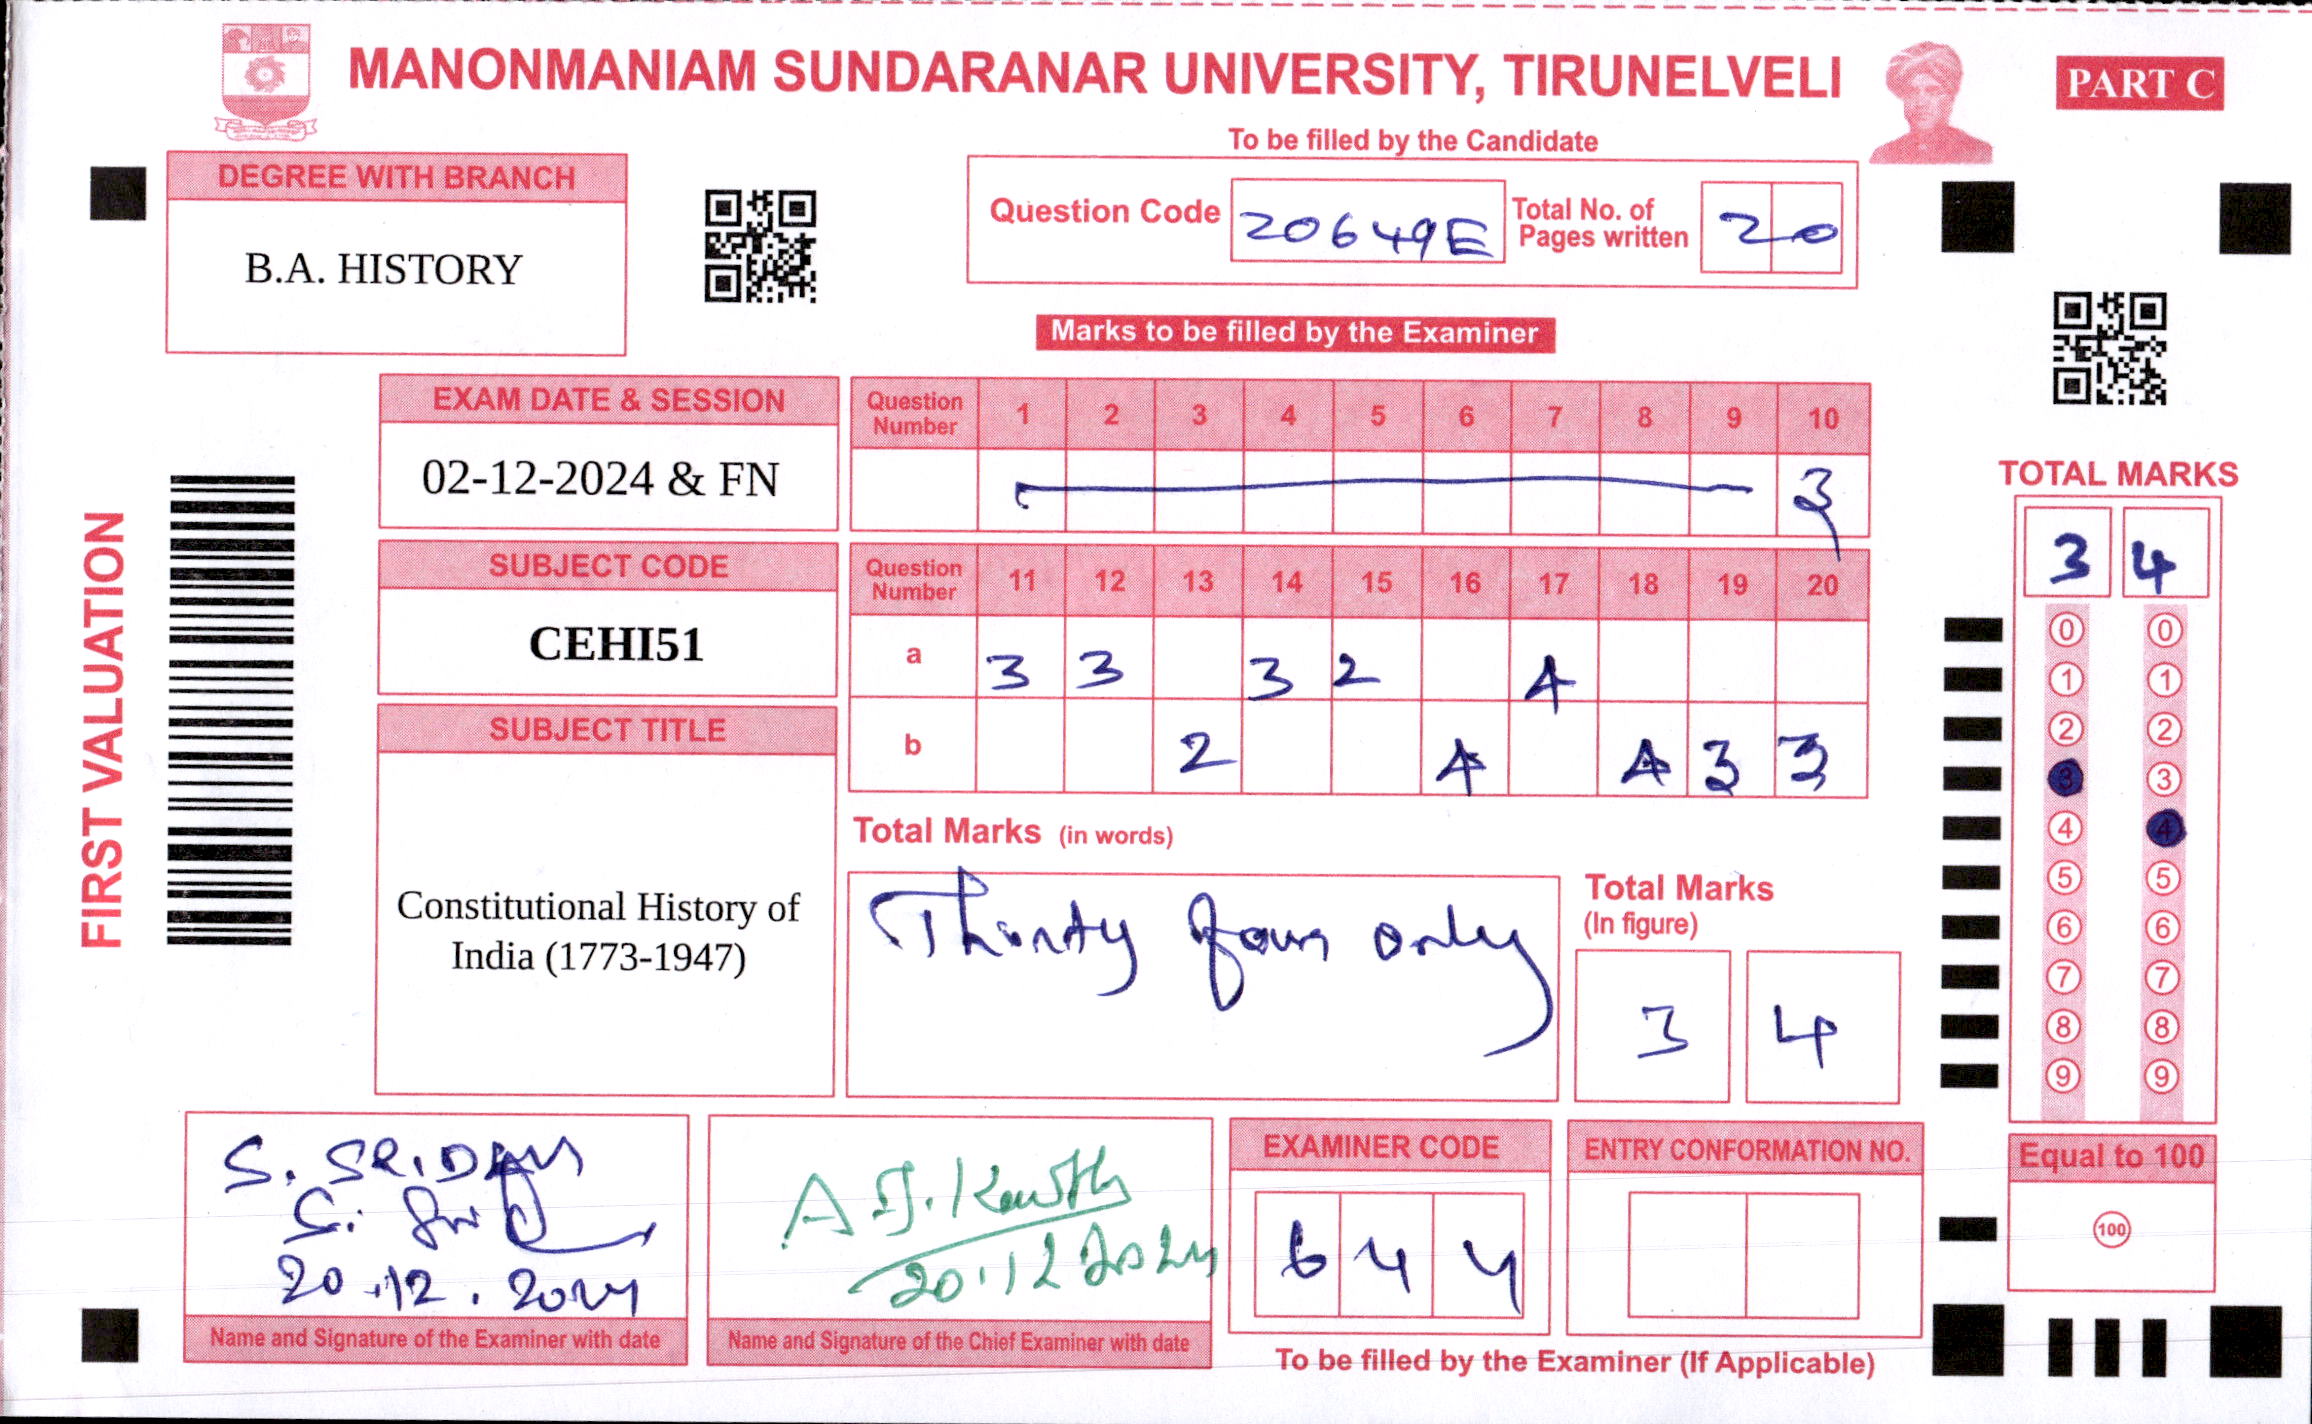 MANONMANIAM SUNDARANAR UNIVERSITY, TIRUNELVELI
PART C
To be filled by the Candidate
DEGREE WITH BRANCH
B.A. HISTORY
Question Code 20649E Total No. of Pages written 20
Marks to be filled by the Examiner
EXAM DATE & SESSION
02-12-2024 & FN
Question Number 1 2 3 4 5 6 7 8 9 10
3
SUBJECT CODE
CEHI51
Question Number 11 12 13 14 15 16 17 18 19 20
a 3 3 3 2 4
b 2 4 4 3 3
SUBJECT TITLE
Constitutional History of
India (1773-1947)
Total Marks (in words)
Thirty four only
Total Marks
(In figure)
3 4
FIRST VALUATION
TOTAL MARKS
3 4
0 0
1 1
2 2
3 3
4 4
5 5
6 6
7 7
8 8
9 9
Equal to 100
100
S. SRIDAR
20.12.2024
Name and Signature of the Examiner with date
20.12.2024
Name and Signature of the Chief Examiner with date
EXAMINER CODE
6 4 4
ENTRY CONFORMATION NO.
To be filled by the Examiner (If Applicable)